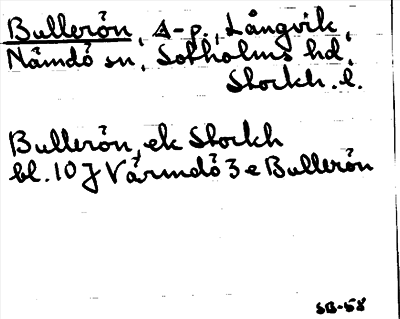 Bullerön, Δ-p., Långvik,
Nämdö sn, Sotholms hd,
Stockh. l.
Bullerön, ek Stockh
bl. 10 J Värmdö 3 e Bullerön
SB-58